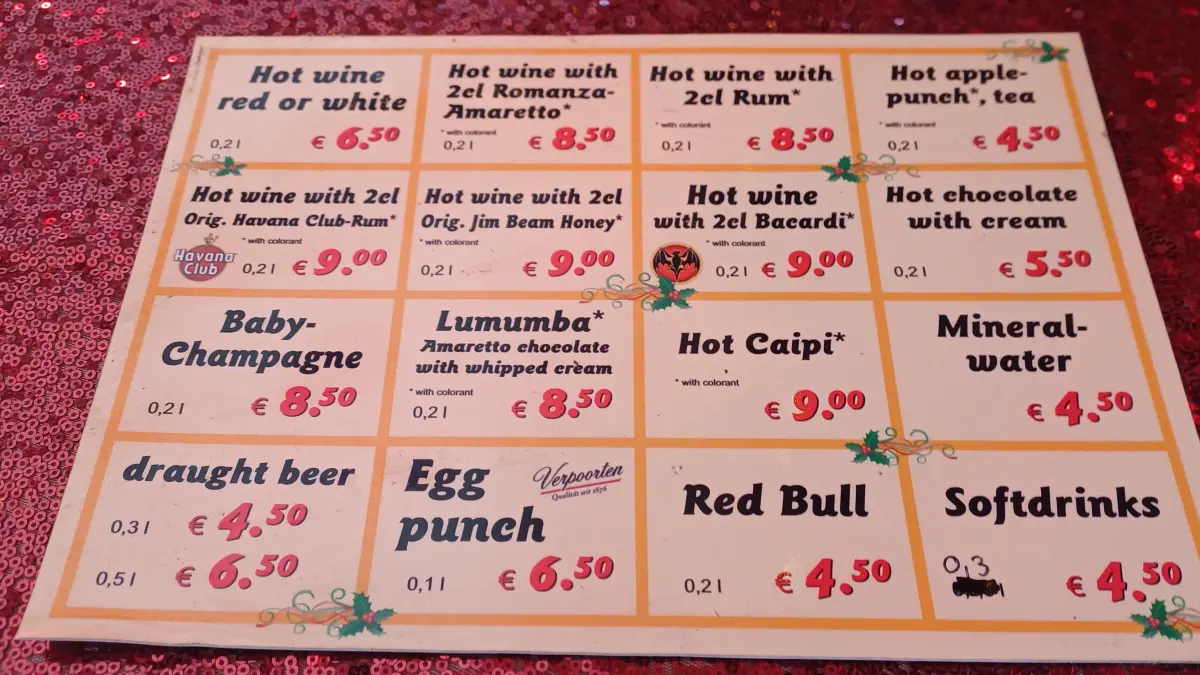 Hot wine
red or white
0,2 l € 6.50
Hot wine with
2cl Romanza-
Amaretto*
* with colorant
0,2 l € 8.50
Hot wine with
2cl Rum*
* with colorant
0,2 l € 8.50
Hot apple-
punch*, tea
* with colorant
0,2 l € 4.50
Hot wine with 2cl
Orig. Havana Club-Rum*
* with colorant
Havana
Club
0,2 l € 9.00
Hot wine with 2cl
Orig. Jim Beam Honey*
* with colorant
0,2 l € 9.00
Hot wine
with 2cl Bacardi*
* with colorant
0,2 l € 9.00
Hot chocolate
with cream
0,2 l € 5.50
Baby-
Champagne
0,2 l € 8.50
Lumumba*
Amaretto chocolate
with whipped cream
* with colorant
0,2 l € 8.50
Hot Caipi*
* with colorant
€ 9.00
Mineral-
water
€ 4.50
draught beer
0,3 l € 4.50
0,5 l € 6.50
Egg
punch
Verpoorten
Qualität seit 1876
0,1 l € 6.50
Red Bull
0,2 l € 4.50
Softdrinks
0,3
€ 4.50